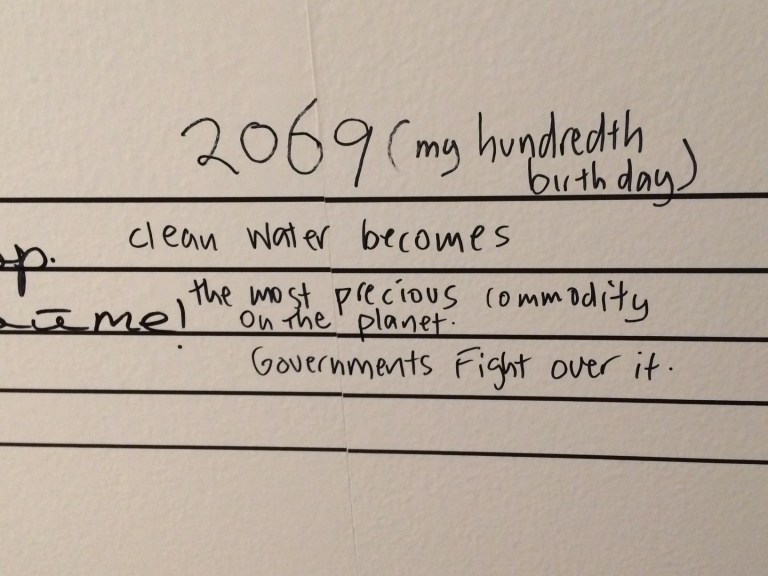 2069 (my hundredth
birthday)
clean water becomes
the most precious commodity
on the planet.
Governments Fight over it.
p.
me!